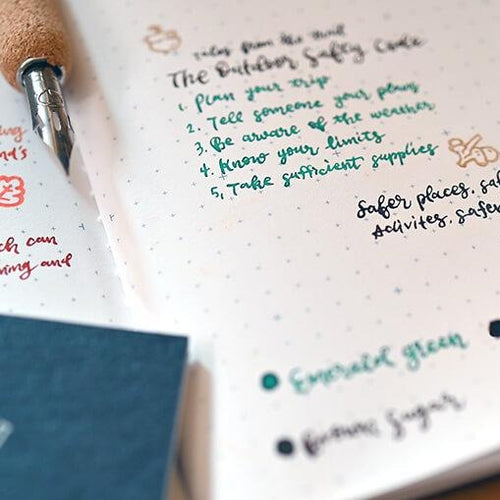 ing
nd's
ch can
ning and
rules from the trail
The Outdoor Safty Code
1. Plan your trip
2. Tell someone your plans
3. Be aware of the weather
4. Know your limits
5. Take sufficient supplies
Safer places, saf
Activites, safer
Emerald green
Brown Sugar